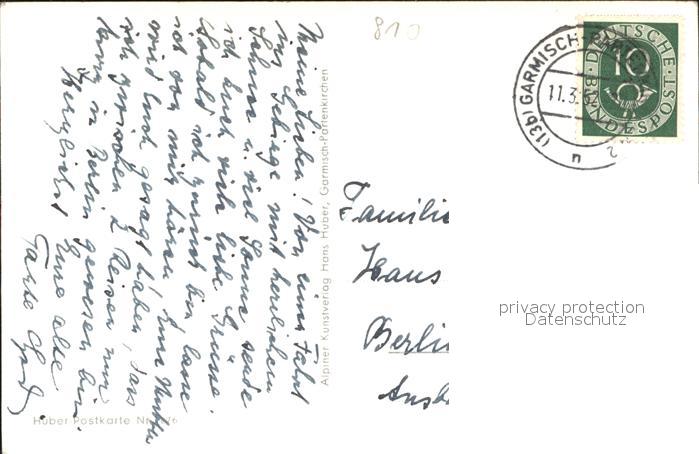 Meine Lieben! Von einer Fahrt
ins Gebirge mit herrlichem
Schnee u. viel Sonne sende
ich Euch viele liebe Grüsse.
Sobald ich zurück bin, lasse
ich von mir hören. Eure Mutter
wird Euch gesagt haben, dass
ich zwischen 2 Reisen nur
kurz in Berlin gewesen bin.
Herzlichst Eure alte
Tante
Huber Postkarte Nr.
Alpiner Kunstverlag Hans Huber, Garmisch-Partenkirchen
810
(13b) GARMISCH-
11.3.
DEUTSCHE
BUNDESPOST
10
Familie
Haus
Berli
privacy protection
Datenschutz